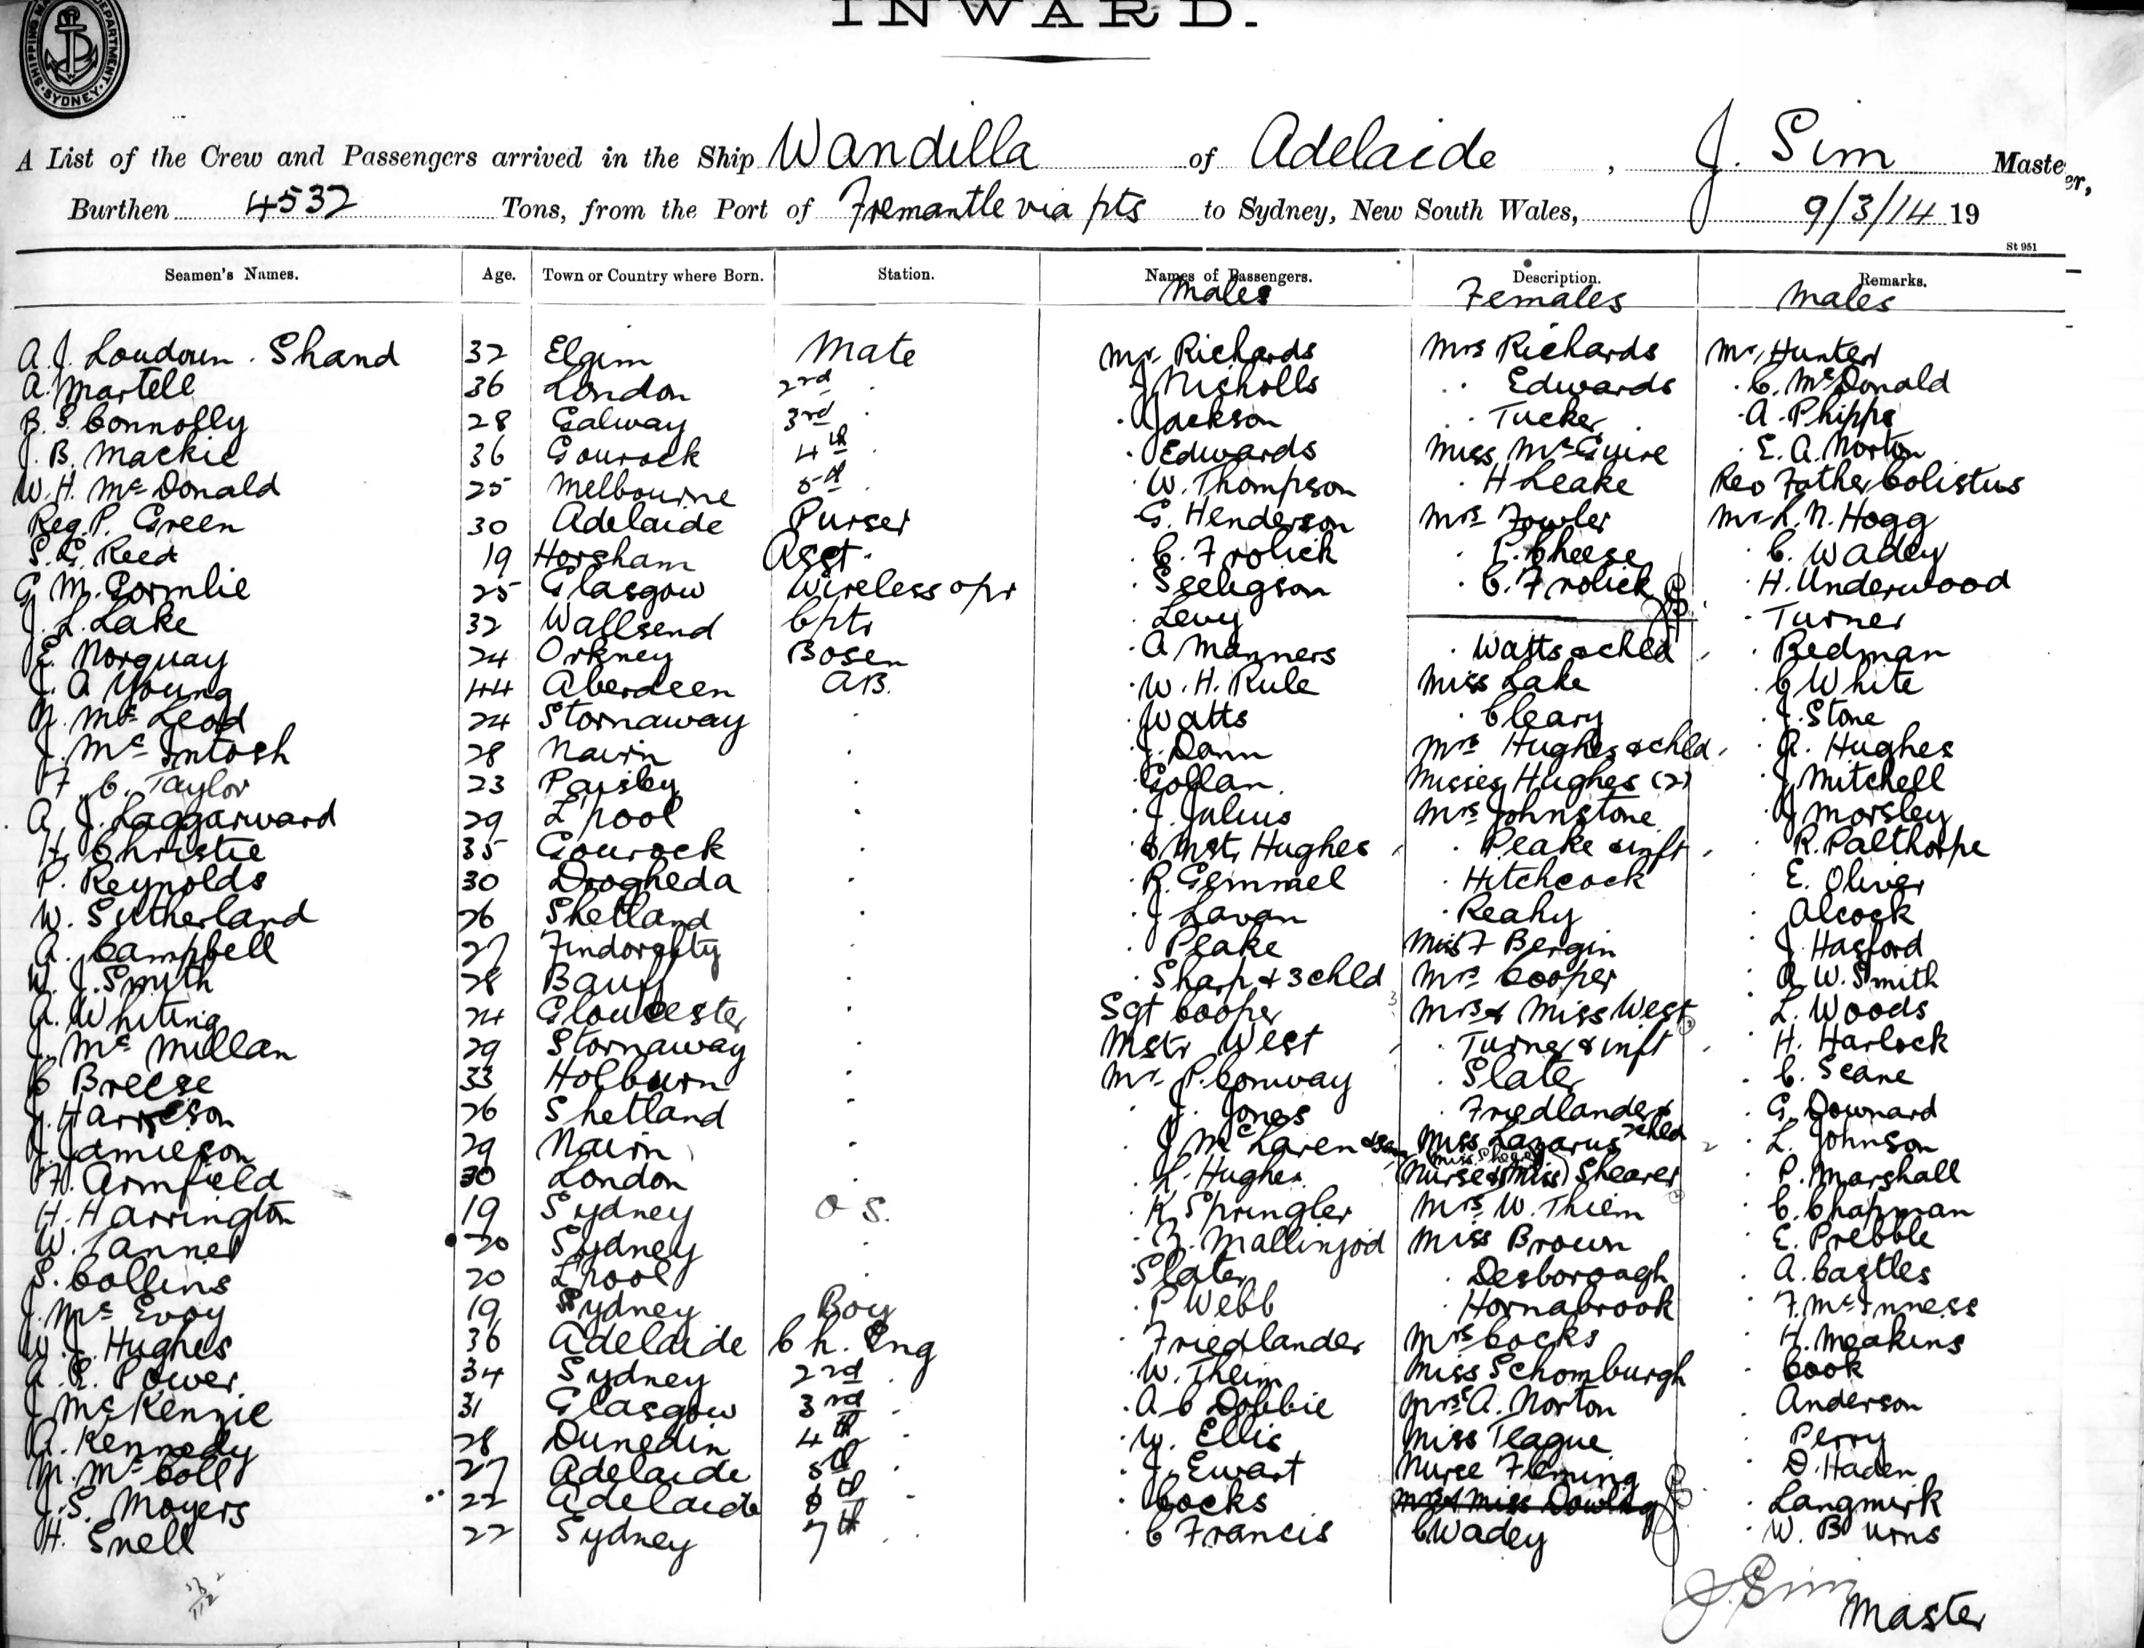 INWARD.
SHIPPING DEPARTMENT. SYDNEY.
A List of the Crew and Passengers arrived in the Ship Wandilla of Adelaide, J. Sim Master,
Burthen 4532 Tons, from the Port of Fremantle via pts to Sydney, New South Wales, 9/3/14 19
St 951
Seamen's Names. Age. Town or Country where Born. Station. Names of Passengers. Description. Remarks.
Males Females Males
A. J. Loudoun. Shand 32 Elgin Mate Mr. Richards Mrs Richards Mr. Hunter
A. Martell 36 London 2nd J Nicholls Edwards C. McDonald
B. S. Connolly 28 Galway 3rd Jackson Tucker A. Phipps
J. B. Mackie 36 Gourock 4th Edwards Miss McGuire E. A. Norton
W. H. McDonald 25 Melbourne 5th W. Thompson H Leake Rev Father Colistus
Reg. P. Green 30 Adelaide Purser G. Henderson Mrs Fowler Mr L. N. Hogg
S. G. Reed 19 Horsham Asst. C. Frolick Cheese C. Wadey
G M. Gormlie 25 Glasgow Wireless opr Seeligson C. Frolick H. Underwood
J. L. Lake 32 Wallsend Cptr Levy Turner
E. Norquay 24 Orkney Bosen A Manners Watts & chld Redman
J. A Young 44 Aberdeen AB. W. H. Rule Miss Lake C White
N. McLeod 24 Stornaway Watts Cleary J. Stone
J. McIntosh 28 Nairn J. Dann Mrs Hughes & chld A. Hughes
F. C. Taylor 23 Paisley Gollan Misses Hughes (2) J Mitchell
A. J. Laggarward 29 L'pool J. Julius Mrs Johnstone J Morsley
H. Christie 35 Gourock & Mstr Hughes Peake & inft R. Palthorpe
P. Reynolds 30 Drogheda R. Gemmel Hitchcock E. Oliver
W. Sutherland 26 Shetland J Lavan Reahy Alcock
A. Campbell 27 Findorchty Peake Miss F Bergin J. Hasford
W. J. Smith 28 Banff Sharp & 3 chld Mrs Cooper A. W. Smith
A. Whiting 24 Gloucester Sgt Cooper Mrs & Miss West L. Woods
J. McMillan 29 Stornaway Mstr West Turner & inft H. Harlock
C Breese 33 Holburn Mr P. Conway Slater C. Seane
J. Harrison 26 Shetland J. Jones Friedlander G. Downard
J. Jamieson 29 Nairn J McLaren & Miss Lazarus chld L. Johnson
H. Armfield 30 London L. Hughes Nurse & (Miss) Shearer P. Marshall
H. Harrington 19 Sydney O S. K Springler Mrs W. Thiem C. Chapman
W. Tanner 20 Sydney Mallinjod Miss Brown E. Prebble
S. Collins 20 L'pool Slater Desborough A. Castles
J. McEvoy 19 Sydney Boy P Webb Hornabrook F. McInness
W. J. Hughes 36 Adelaide Ch. Eng Friedlander Mrs Cocks H. Meakins
A. R. Power. 34 Sydney 2nd W. Theim Miss Schomburgh Cook
J McKenzie 31 Glasgow 3rd A C Dobbie Mrs A. Norton Anderson
A. Kennedy 28 Dunedin 4th W. Ellis Miss Teague Perry
M. McColl 27 Adelaide 5th J. Ewart Nurse Fleming D. Haden
J. S. Moyers 22 Adelaide 6th Cocks Mrs & Miss Dowling Langmirk
H. Snell 22 Sydney 7th C Francis C Wadey W. Burns
J. Sim
Master